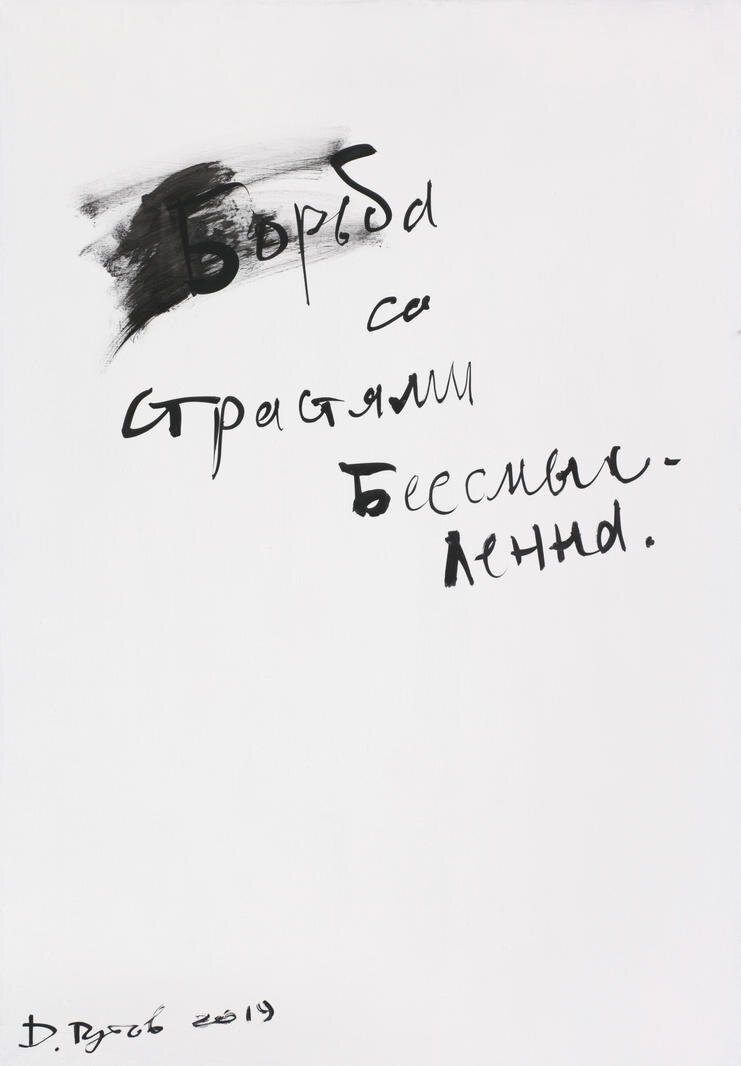 Борьба
со
страстями
Бессмыс-
ленна.
Д. Гутов 2019